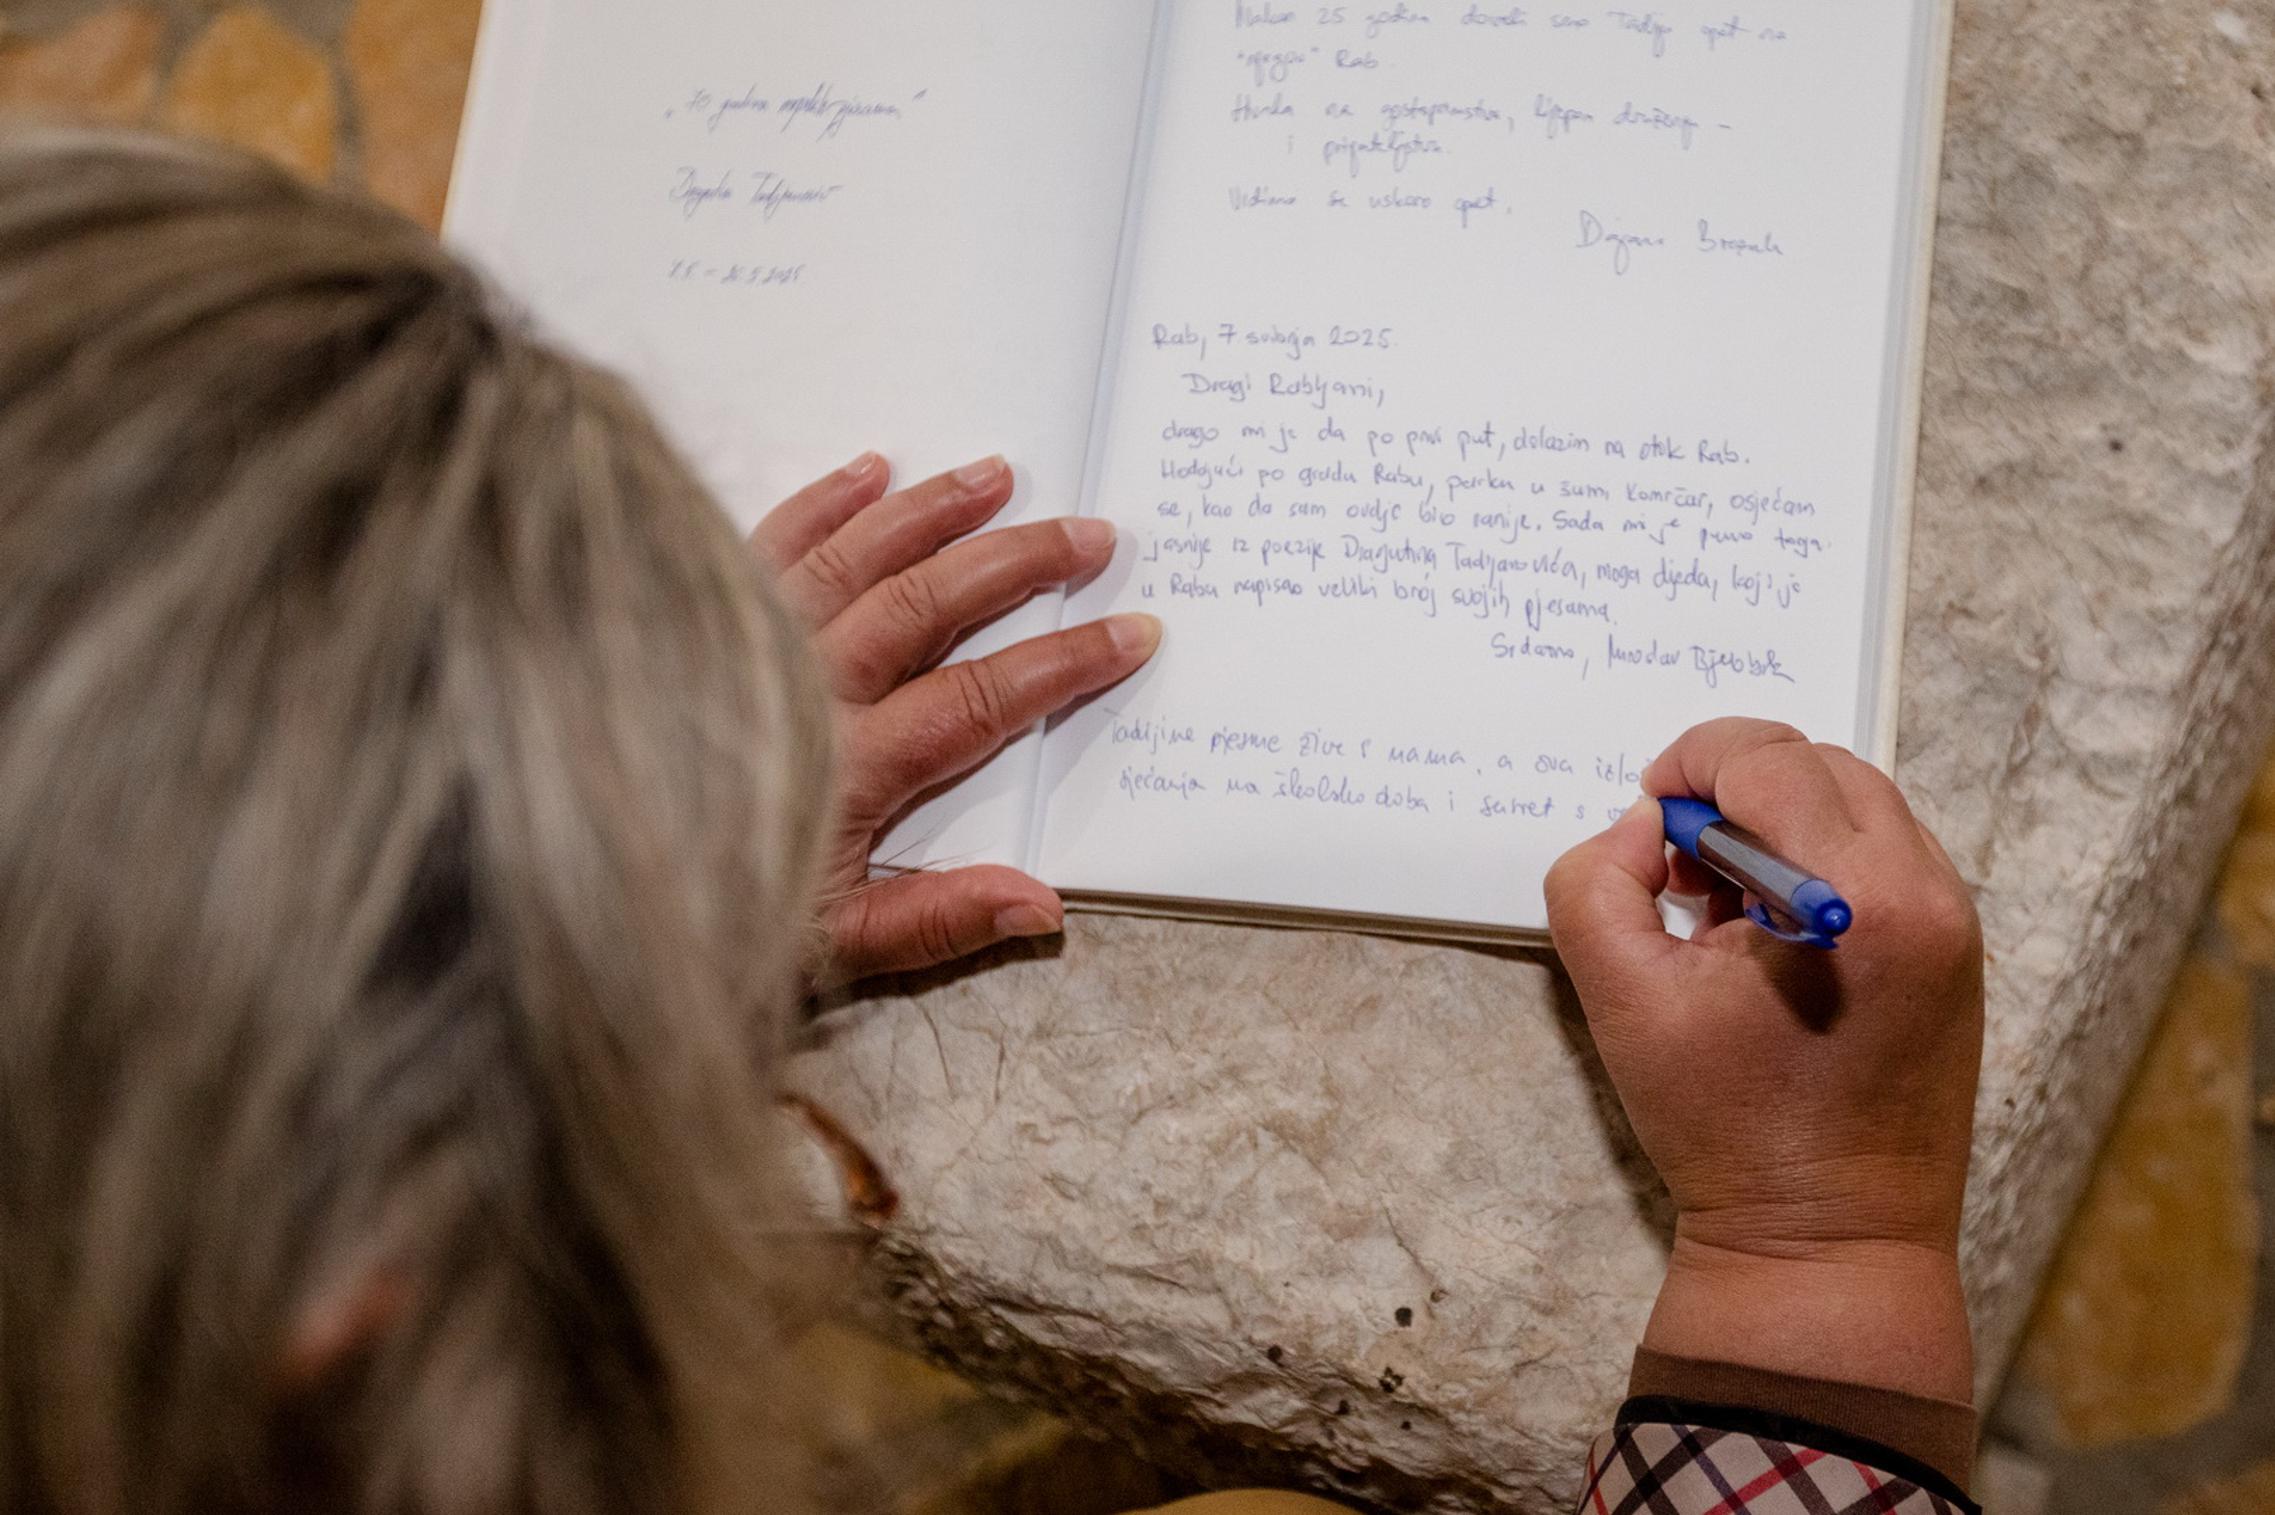 „70 godina
Dragutin Tadijanović
7.5. – 20.5.2025.
Nakon 25 godina doveli smo Tadiju opet na
"njegov" Rab.
Hvala na gostoprimstvu, lijepom druženju –
i prijateljstvu.
Vidimo se uskoro opet.
Rab, 7. svibnja 2025.
Dragi Rabljani,
drago mi je da po prvi put, dolazim na otok Rab.
Hodajući po gradu Rabu, parku u šumi Komrčar, osjećam
se, kao da sam ovdje bio ranije. Sada mi je puno toga
jasnije iz poezije Dragutina Tadijanovića, moga djeda, koji je
u Rabu napisao veliki broj svojih pjesama.
Srdačno,
Tadijine pjesme žive s nama, a ova
sjećanja na školsko doba i susret s